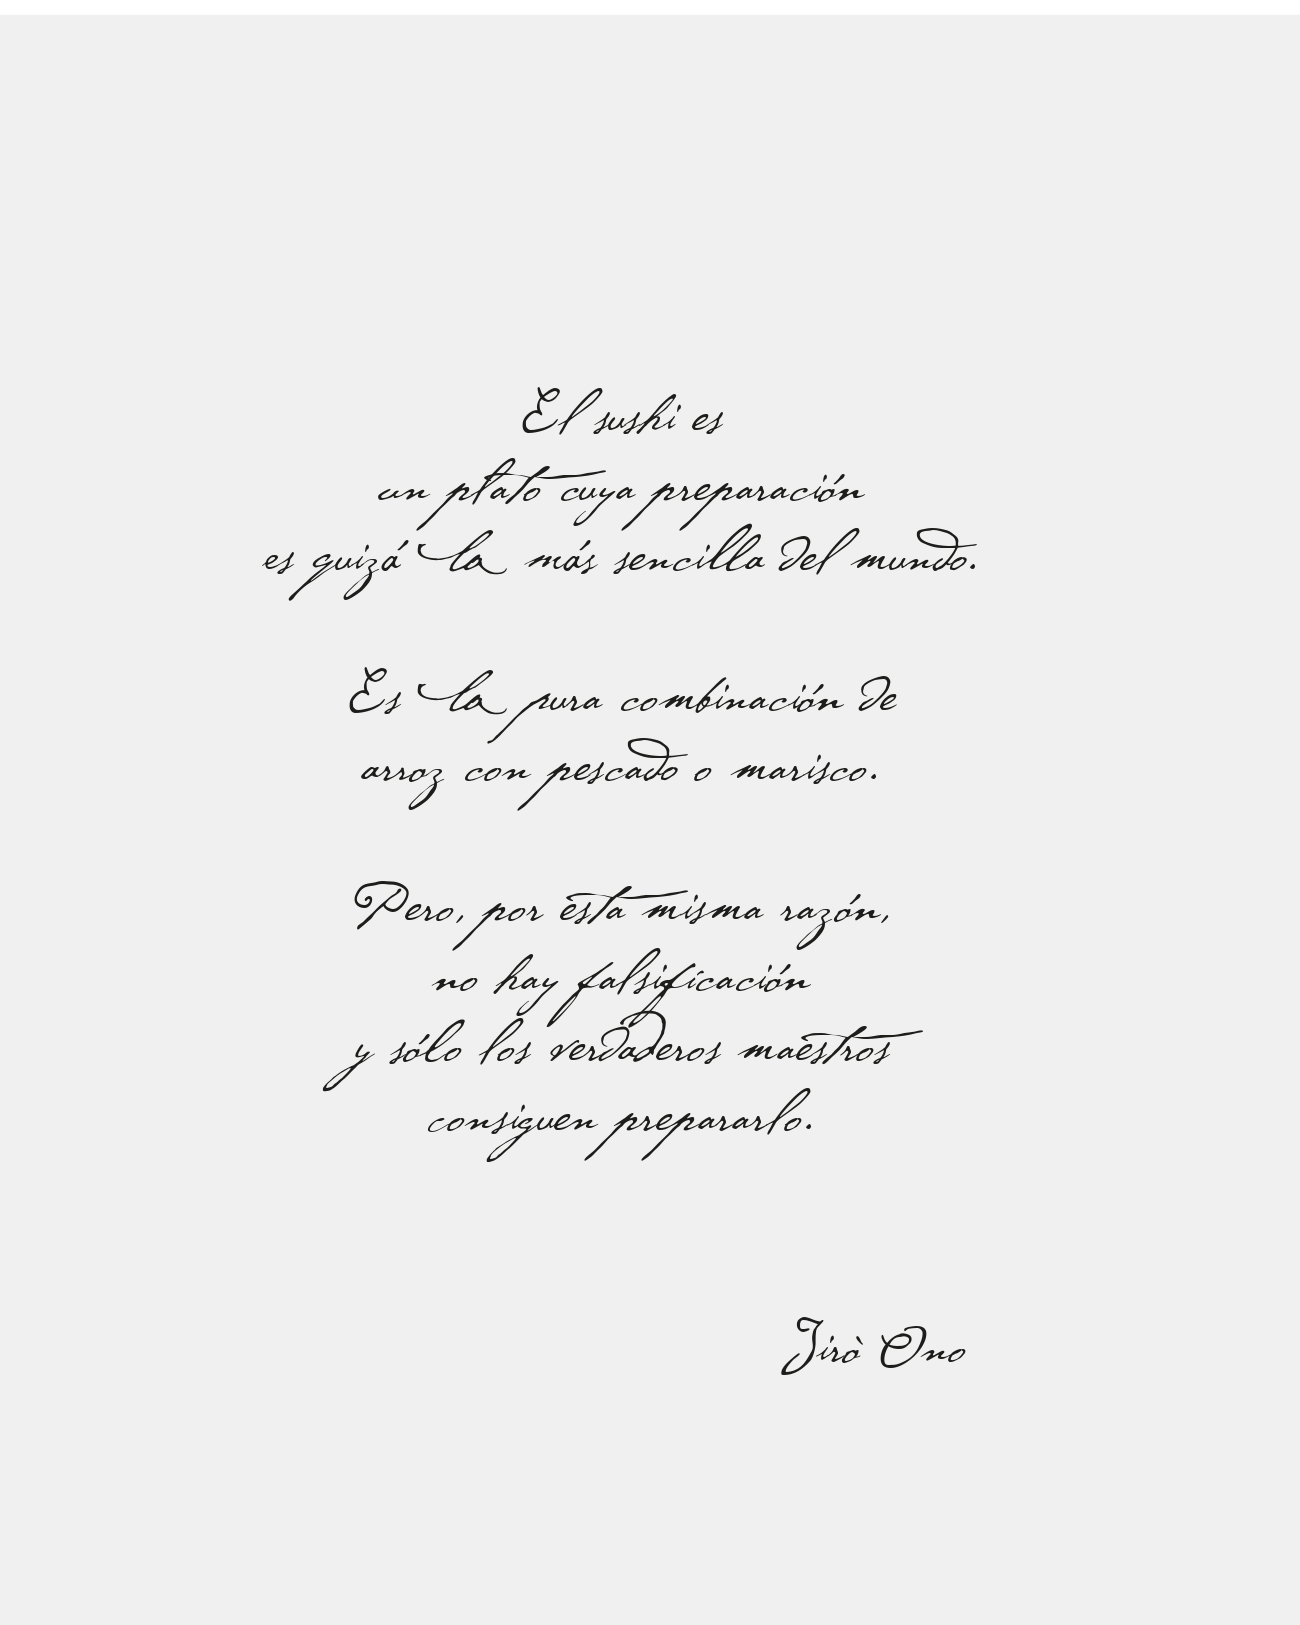 El sushi es
un plato cuya preparación
es quizá la más sencilla del mundo.
Es la pura combinación de
arroz con pescado o marisco.
Pero, por esta misma razón,
no hay falsificación
y sólo los verdaderos maestros
consiguen prepararlo.
Jirò Ono